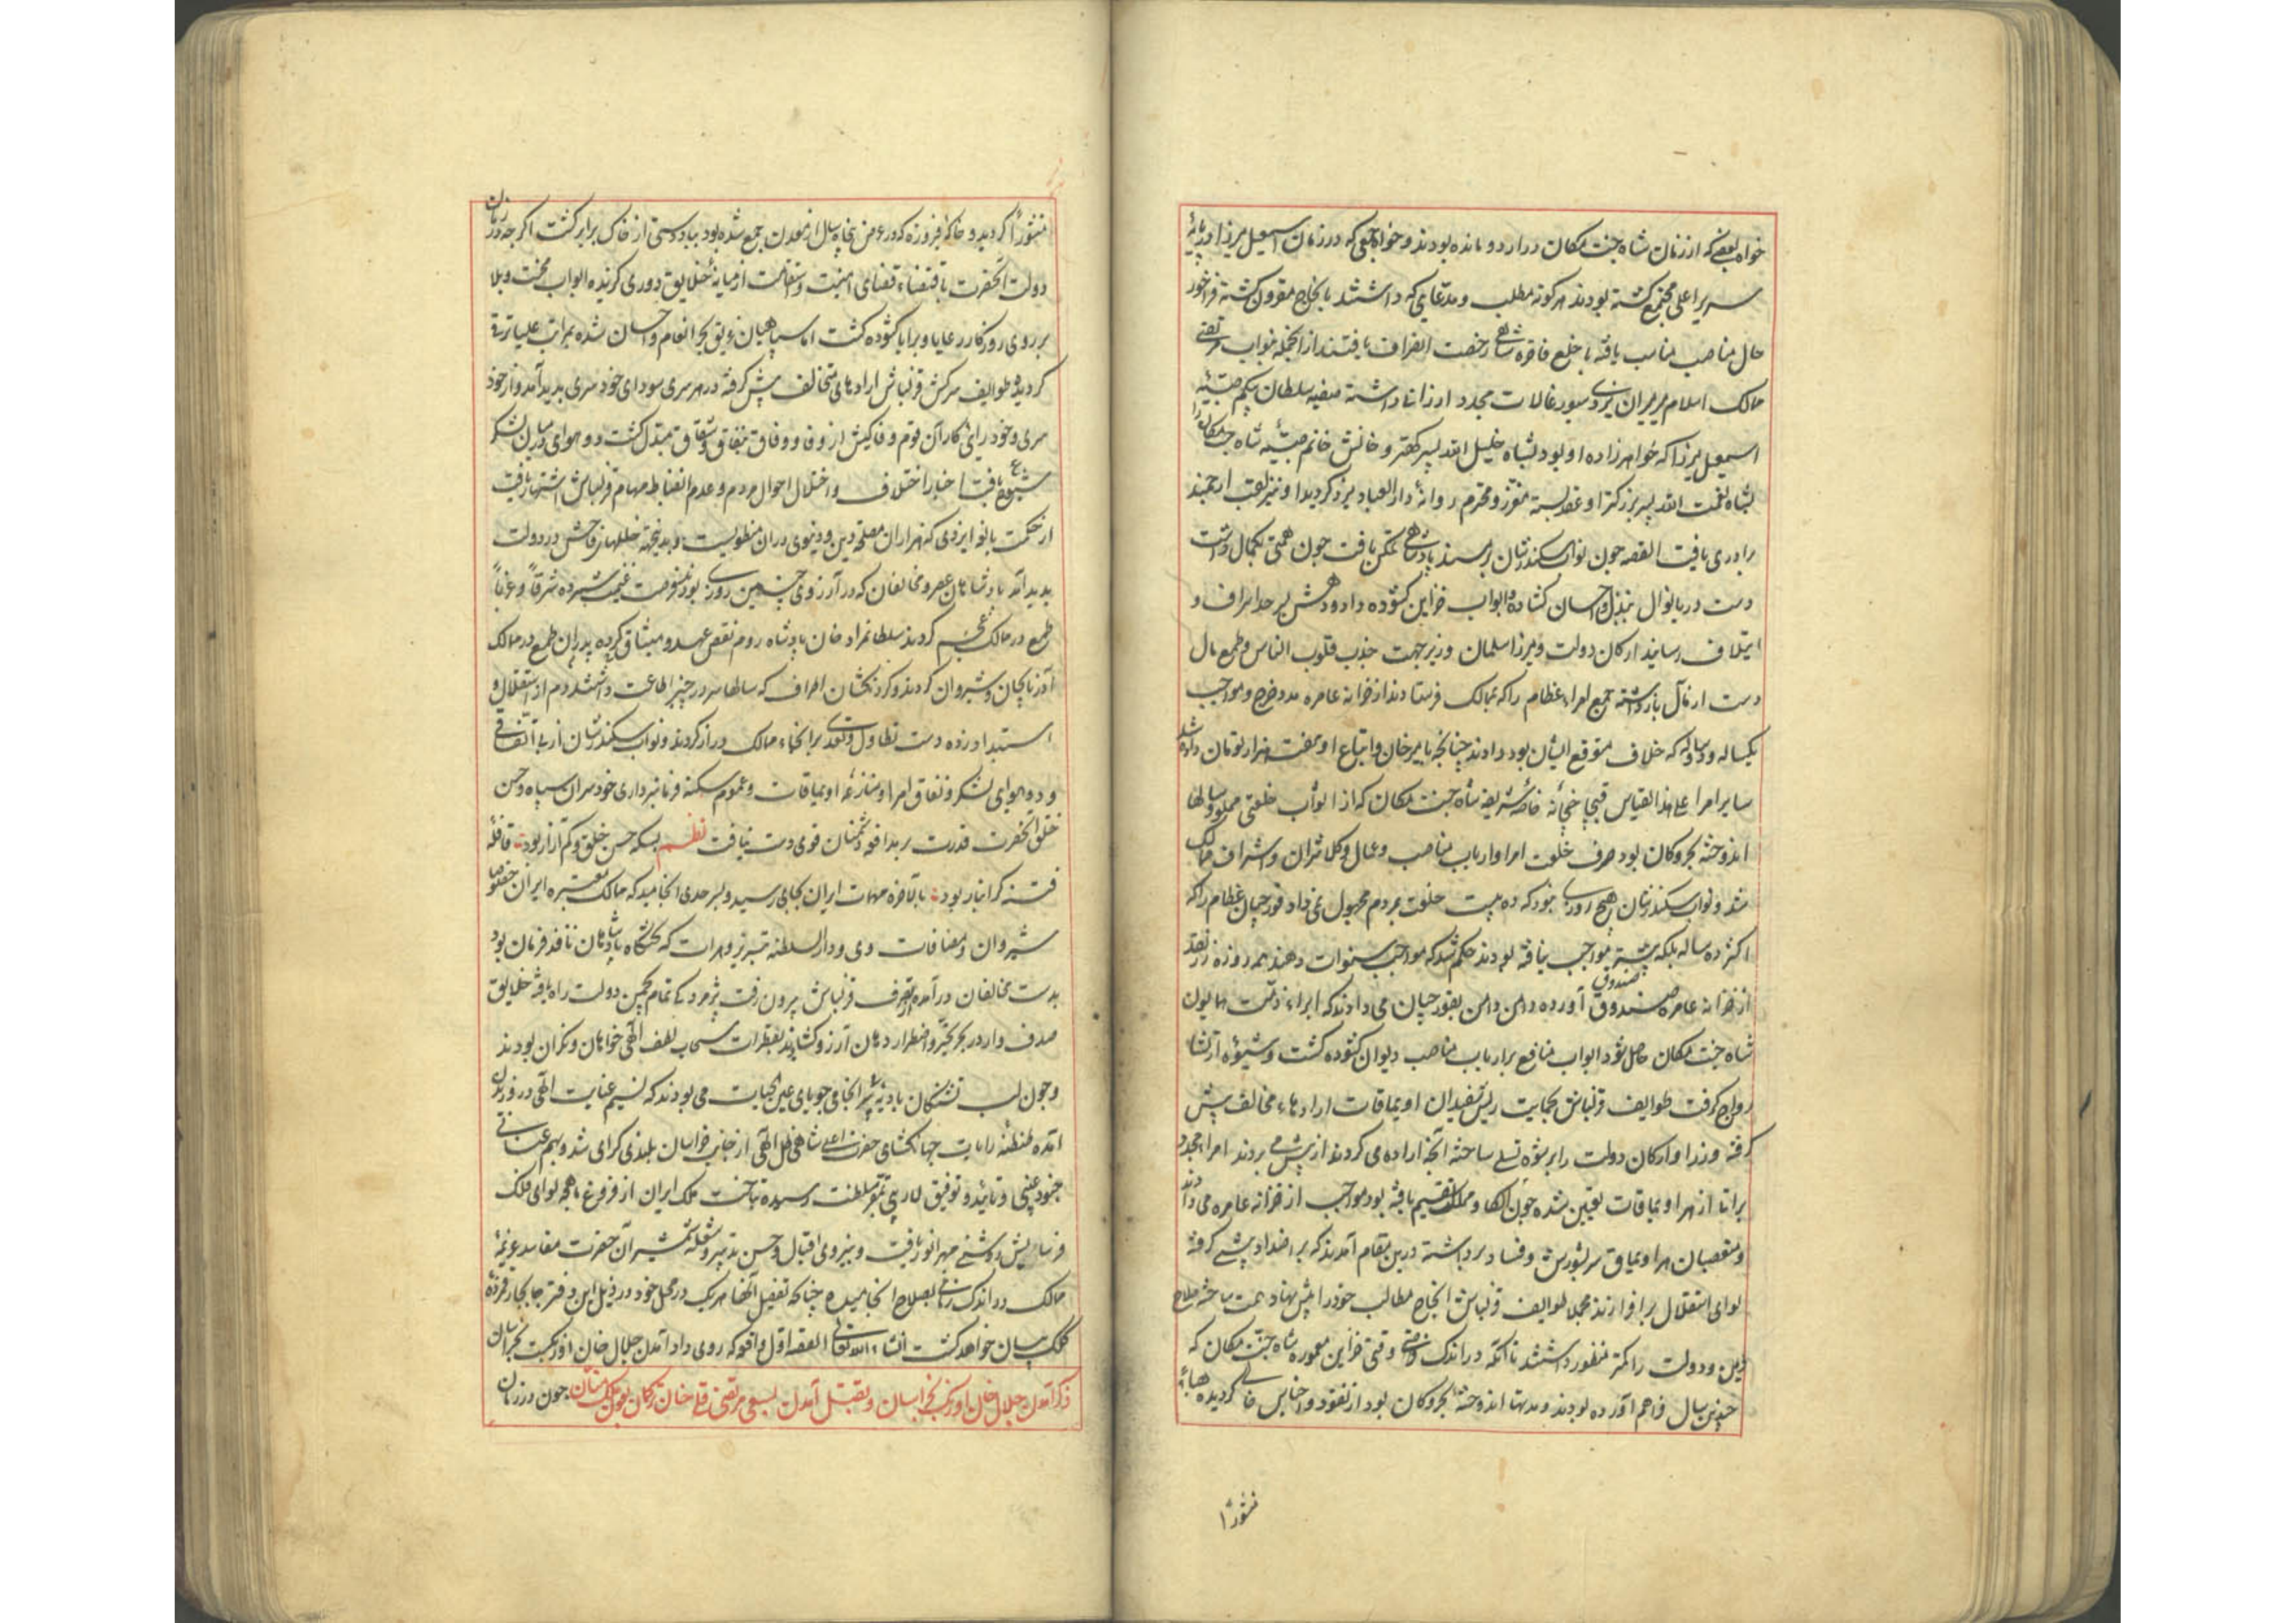 خواه بعضی که از زمان شاه جنت مکان در اردو مانده بودند و خواه جمعی که در زمان اسمعیل میرزا در پایهٔ
سریر اعلی مجتمع گشته بودند هر کونه مطلب و مدعایی که داشتند بانجاح مقرون کشته فراخور
حال مناصب مناسب یافته با خلع فاخره شاهی رخصت انصراف یافتند از انجمله نواب مرتضی
ممالک اسلام میرمیران یزدی سیورغالات مجدد ارزانی داشته صفیه سلطان بیکم صبیهٔ
اسمعیل میرزا که خواهرزاده او بود بشاه خلیل الله پسر کهتر و خانش خانم صبیه شاه جنت مکان را
بشاه نعمت الله پسر بزرکتر او عقد بسته معزز و محترم روانهٔ دار العباد یزد کردید و او نیز لقب ارجمند
برادری یافت القصه چون نواب سکندرشان بر مسند پادشاهی تمکن یافت چون همتی بکمال داشت
دست دریا نوال ببذل و احسان کشاده و ابواب خزاین کشوده داد و دهش بسر حد اسراف و
اتلاف رسانید ارکان دولت و میرزا سلمان وزیر جهت جذب قلوب الناس و طمع مال
دست از مآل بازداشته جمیع امراء عظام را که بممالک فرستادند از خزانه عامره مدد خرج و مواجب
یکساله و دوساله که خلاف متوقع ایشان بود دادند چنانچه بامیر خان و اتباع او هفت هزار تومان داده شد
سایر امرا علی هذا القیاس قیچاجی خانه خاصه شریفه شاه جنت مکان که از اثواب خلعتی مملو و سالها
اندوخته بحر و کان بود صرف خلعت امرا و ارباب مناصب و عمال و کلانتران و اشراف ممالک
شد و نواب سکندرشان هیچ روزی نبود که ده بیست خلعت بمردم مجهول نمی داد قورچیان عظام را که
اکثر ده ساله بلکه بیشتر مواجب نیافته بودند حکم شد که مواجب سنوات دهند همه روزه زر نقد
از خزانه عامره صندوق صندوق آورده دامن دامن بقورچیان می دادند که ابراء ذمت همایون
شاه جنت مکان حاصل شود ابواب منافع بر ارباب مناصب دیوان کشوده کشت و شیوه ارتشا
رواج کرفت طوایف قزلباش بحمایت ریش سفیدان اویماقات ارادهاء مخالف پیش
کرفته وزرا و ارکان دولت را برشوه تسلی ساخته آنچه اراده می کردند از پیش می بردند امراء مجدد
براتها از هر اویماقات تعیین شده چون الکها و ممالک تقسیم یافته بود مواجب از خزانه عامره می دادند
و متعصبان هر اویماق سر بشورش و فساد برداشته درین مقام آمدند که بر اضداد پیشی کرفته
لوای استقلال برافرازند مجملا طوایف قزلباش انجاح مطالب خود را پیش نهاد همت ساخته صلاح
دین و دولت را کمتر منظور داشتند تا آنکه در اندک وقتی خزاین معموره شاه جنت مکان که
چندین سال فراهم آورده بودند و مدتها اندوخته بحر و کان بود از نقود و اجناس خالی کردیده هباء
منثورا
منثوراً کردید و خاک فیروزه که در عرض پنجاه سال از معدن جمع شده بود بباددستی از خاک برابر کشت اکرچه در زمان
دولت آنحضرت باقتضاء قضای امنیت و استقامت از میانهٔ خلایق دوری کزیده ابواب محنت و بلا
بر روی روزکار رعایا و برایا کشوده کشت اما سپاهیان غریق بحر انعام و احسان شده بمراتب علیا ترقی
کردید و طوایف سرکش قزلباش ارادهای متخالف پیش کرفته در هر سری سودای خودسری پدید آمد و از خود
سری و خودرایی کار آن قوم وفاکیش از وفا و وفاق بنفاق و شقاق مبدل کشت دو هوایی در میان لشکر
شیوع یافت اخبار اختلاف و اختلال احوال مردم و عدم انضباط مهام قزلباش اشتهار یافت
از حکمت بالغه ایزدی که هزاران مصلحت دین و دنیوی در آن منظوریست بدینجهة خللهای فاحش در دولت
پدید آمد پادشاهان عصر و مخالفان که در آرزوی چنین روزی بودند فرصت غنیمت شمرده شرقاً و غرباً
طمع در ممالک عجم کردند سلطانمراد خان پادشاه روم نقض عهد و میثاق کرده پدران طمع در ممالک
آذربایجان و شیروان کردند و کردنکشان اطراف که سالها سر در چنبر اطاعت داشتند دم از استقلال و
استبداد زده دست تطاول و تعدی بر انحاء ممالک دراز کردند و نواب سکندرشان از بی اتفاقی
و دوهوایی لشکر و نفاق امرا و منازعه اویماقات و عموم سکنه و نافرمانبرداری خودسران سپاه و حسن
خلق آنحضرت قدرت بر مدافعه دشمنان قوی دست نیافت نظم بسکه حسن خلق و کم آزار بود قافله
فتنه کرانبار بود بالاخره مهمات ایران بجایی رسید و بسر حدی انجامید که ممالک معتبره ایران خصوصا
شیروان و مضافات وی و دار السلطنه تبریز و هرات که تختکاه پادشاهان نافذ فرمان بود
بدست مخالفان درآمده از تصرف قزلباش بیرون رفت پژمردکی تمام بچمن دولت راه یافته خلایق
صدف وار در بحر تحیر و اضطرار دهان آرزو کشاده بقطرات سحاب لطف الهی خواهان و نکران بودند
و چون لب تشنکان بادیه بی انجامی جویای عین الحیات می بودند که نسیم عنایت الهی در وزیدن
آمده طنطنه رایات جهانکشای حضرت اعلی شاهی ظل الهی از جانب خراسان بلندی کرای شد و بهم عنانی
جنود غیبی و تایید و توفیق لاریبی بمقر سلطنت رسیده تاج و تخت ملک ایران از فروغ ماهچه لوای فلک
فرسایش روشنی مهر انور یافت و بنیروی اقبال و حسن تدبیر و شعله شمشیر آن حضرت مفاسد عظیمهٔ
ممالک در اندک زمانی بصلاح انجامیده چنانکه تفصیل آنها هر یک در محل خود در ذیل این دفتر جابجا رقمزدهٔ
کلک بیان خواهد کشت انشاء الله تعالی القصه اول واقعه که روی داد آمدن جلال خان اوزبک بخراسان
ذکر آمدن جلال خان اوزبک بخراسان و بقتل آمدن بسعی مرتضی قلی خان ترکمان بعون ملک منان چون در زمان